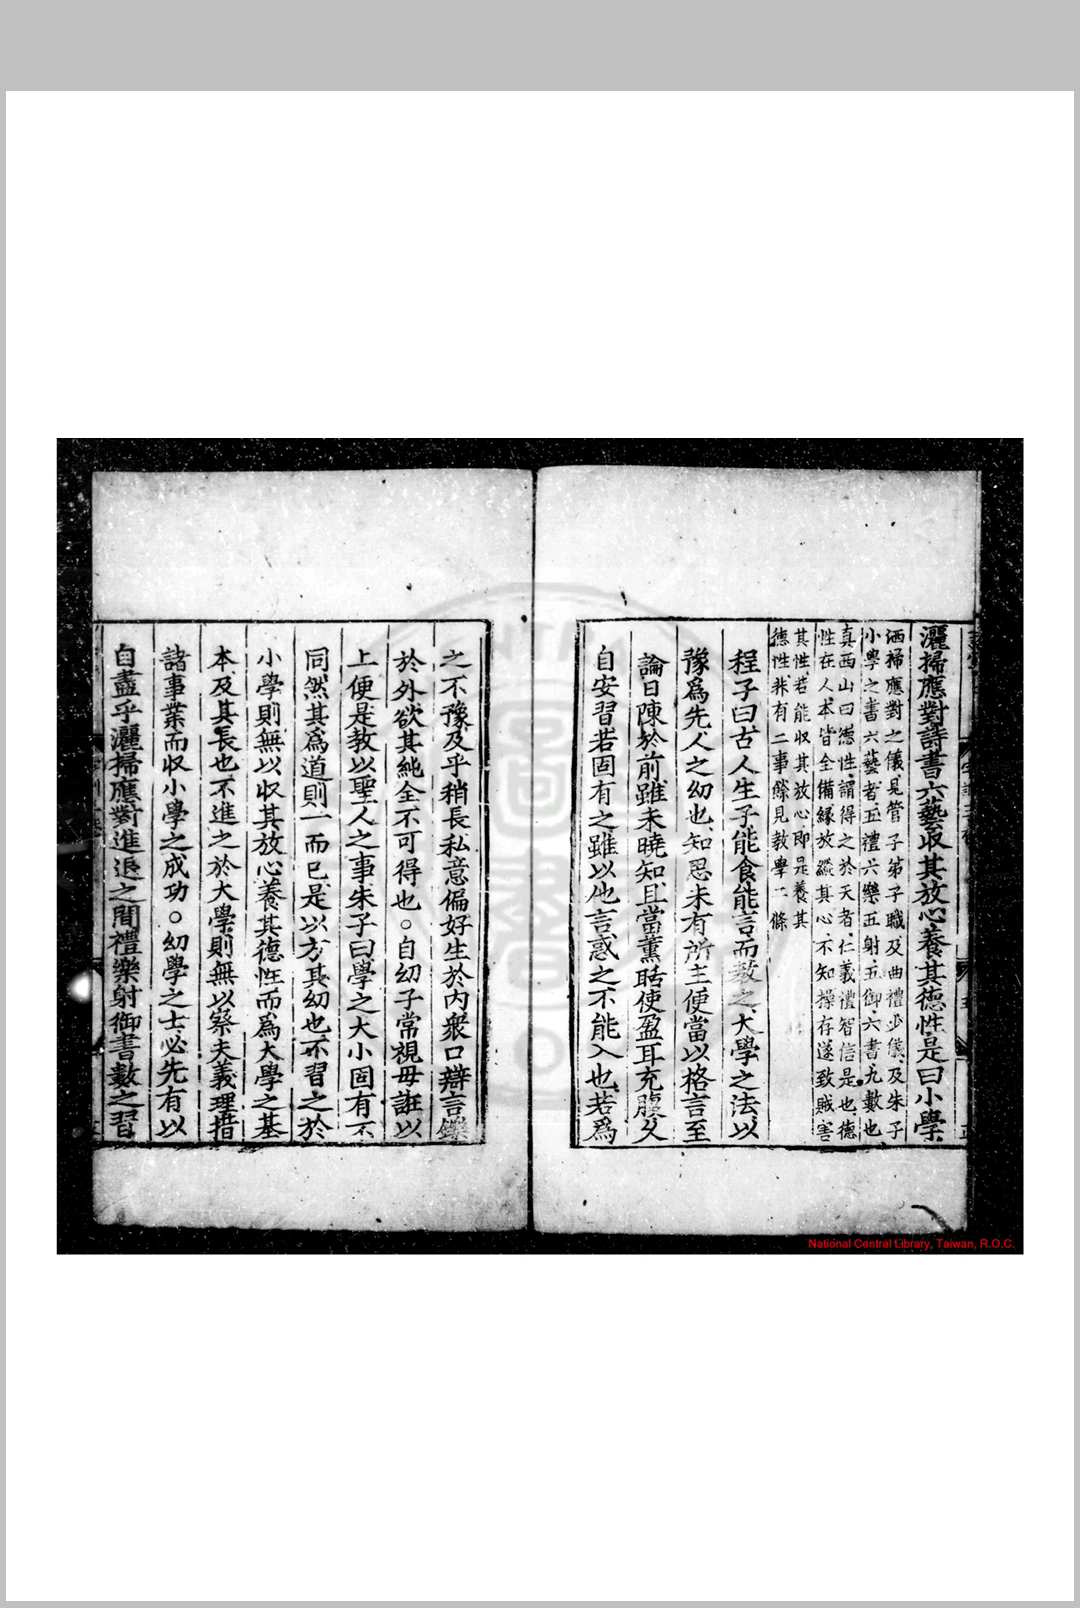 灑掃應對詩書六藝収其放心養其徳性是曰小學
洒掃應對之儀見管子弟子職及曲禮少儀及朱子
小學之書六藝者五禮六樂五射五御六書九數也
真西山曰徳性謂得之於天者仁義禮智信是也徳
性在人本皆全備縁放縱其心不知操存遂致賊害
其性若能収其放心即是養其
徳性非有二事餘見教學二條
程子曰古人生子能食能言而教之大學之法以
豫爲先人之幼也知思未有所主便當以格言至
論日陳於前雖未曉知且當薰聒使盈耳充腹久
自安習若固有之雖以他言惑之不能入也若爲
之不豫及乎稍長私意偏好生於内衆口辯言鑠
於外欲其純全不可得也○自幼子常視毋誑以
上便是教以聖人之事朱子曰學之大小固有不
同然其爲道則一而已是以方其幼也不習之於
小學則無以収其放心養其德性而爲大學之基
本及其長也不進之於大學則無以察夫義理措
諸事業而収小學之成功○幼學之士必先有以
自盡乎灑掃應對進退之間禮樂射御書數之習
National Central Library, Taiwan, R.O.C.